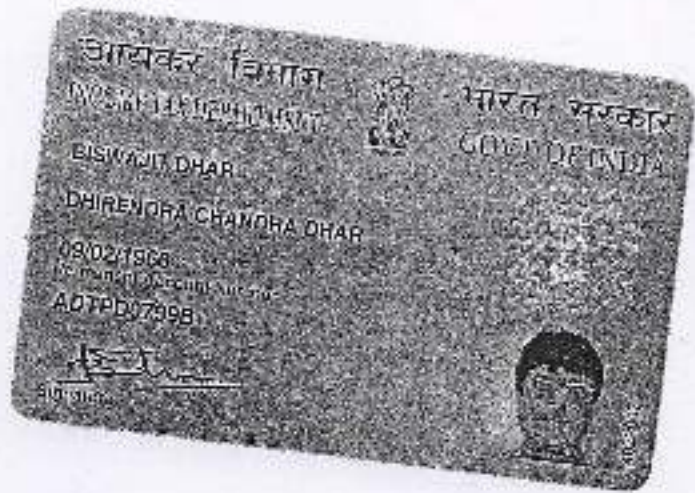 आयकर विभाग
INCOME TAX DEPARTMENT
भारत सरकार
GOVT. OF INDIA
BISWAJIT DHAR
DHIRENDRA CHANDRA DHAR
09/02/1968
Permanent Account Number
Signature